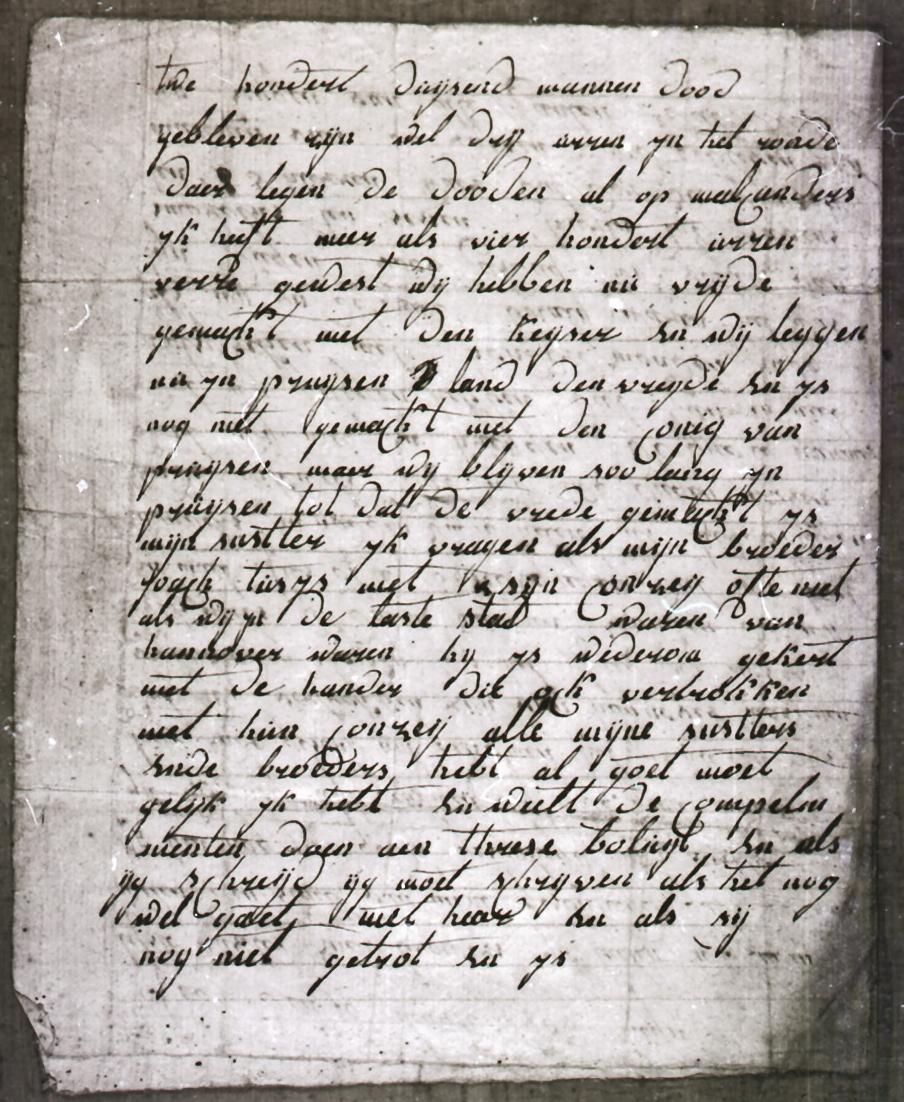 twe hondert duysend mannen dood
gebleven zyn wel dry urren yn het ronde
daer legen de dooden al op malcanders
yk heft meer als vier hondert urren
verre gewest wy hebben nu vryde
gemackt met den Keyser en wij leggen
nu yn pruysen land den vreyde en ys
nog niet gemackt met den Conig van
pruysen maer wy blyven soo lang yn
pruysen tot dat de vrede gemackt ys
mijn suster yk vragen als mijn broeder
tuys met sijn Conzey ofte niet
als wy yn de laste stad waren van
hannover waren hy ys wederom gekert
met de hander die ock vertrokken
met hun Conzey alle mijne susters
ende broeders hebt al goet moet
gelyk yk hebt en wilt de Compelm
menten doen aen therese en als
gy schreyd gy moet schryven als het nog
wel gaet met haer en als sy
nog niet getrot en ys